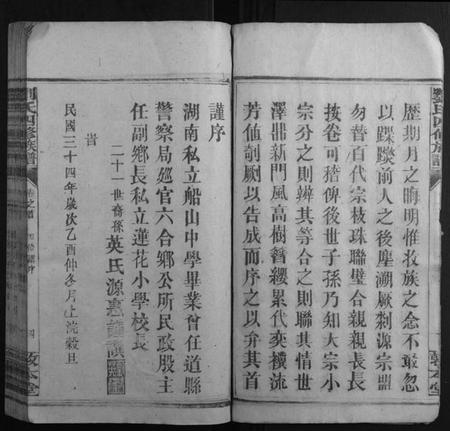 劉氏四修族譜
歷期月之晦明惟敉族之念不敢忽
以踩躞前人之後塵溯厥剏源宗盟
勿替百代宗枝珠聯璧合親親長長
按卷可稽俾後世子孫乃知大宗小
宗分之則辨其等合之則聯其情世
澤鼎新門風高樹簪纓累代奕禩流
芳佈剞劂以告成而序之以弁其首
謹序
湖南私立船山中學畢業曾任道縣
警察局廵官六合鄉公所民政股主
任副鄉長私立蓮花小學校長
二十一世裔孫英氏源惠謹撰
民國三十四年歲次乙酉仲冬月上浣穀旦
劉氏四修族譜
卷之首
四
敦本堂